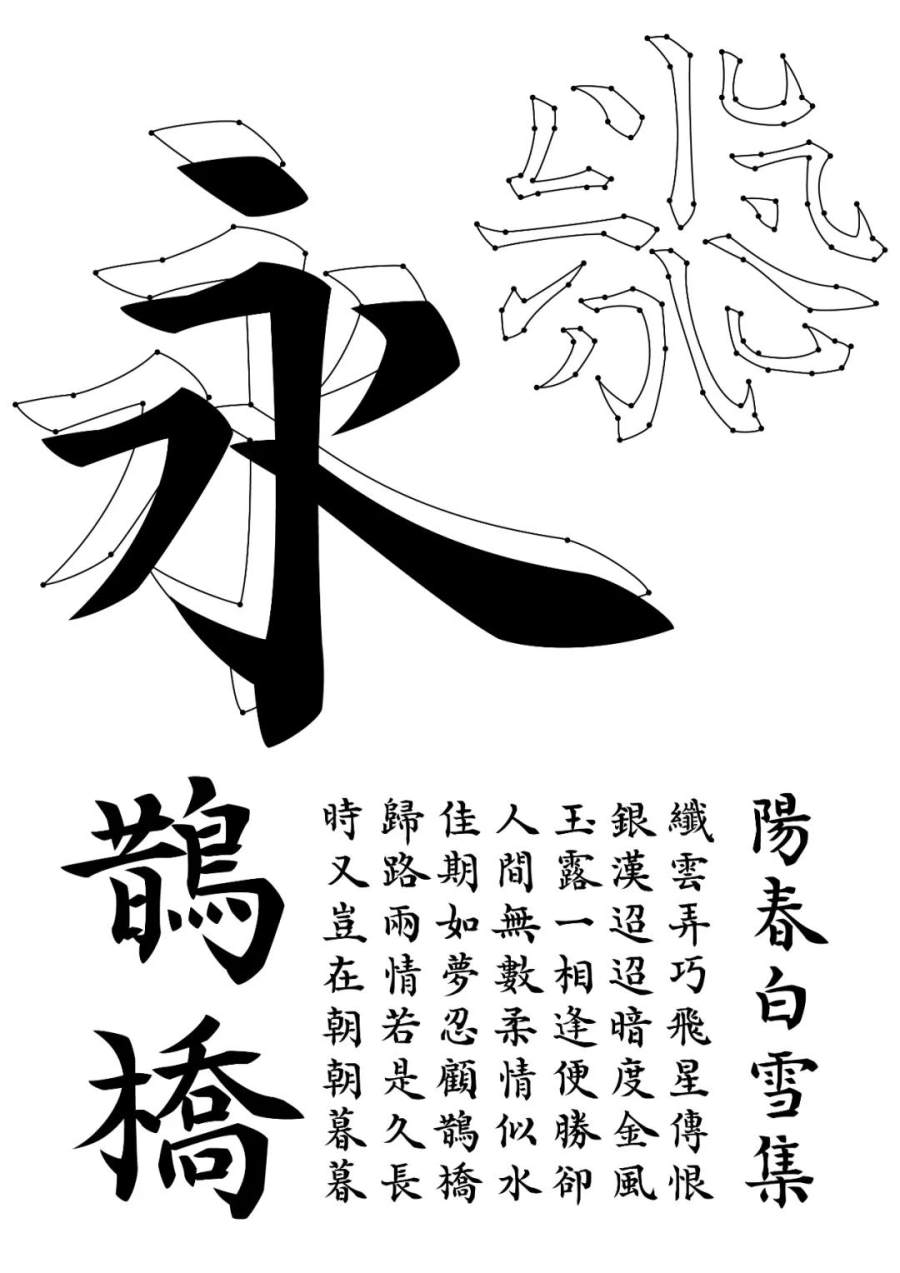 永
飛
陽春白雪集
纖雲弄巧飛星傳恨
銀漢迢迢暗度金風
玉露一相逢便勝卻
人間無數柔情似水
佳期如夢忍顧鵲橋
歸路兩情若是久長
時又豈在朝朝暮暮
鵲橋